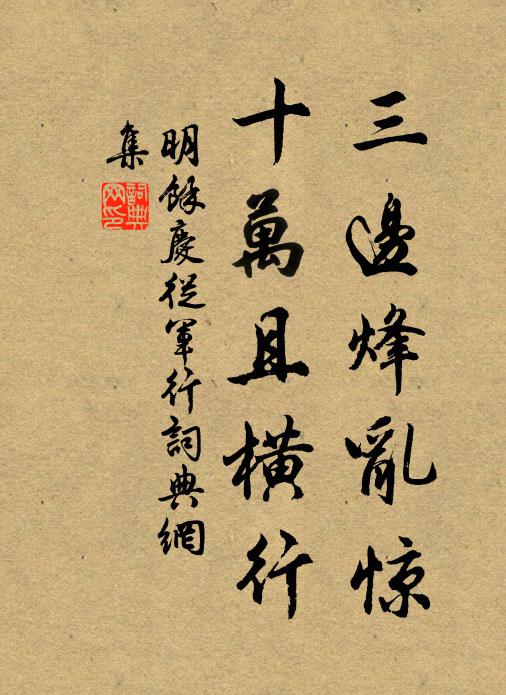 三邊烽亂惊
十萬且橫行
明餘慶從軍行詞典網
集
詞典
网印